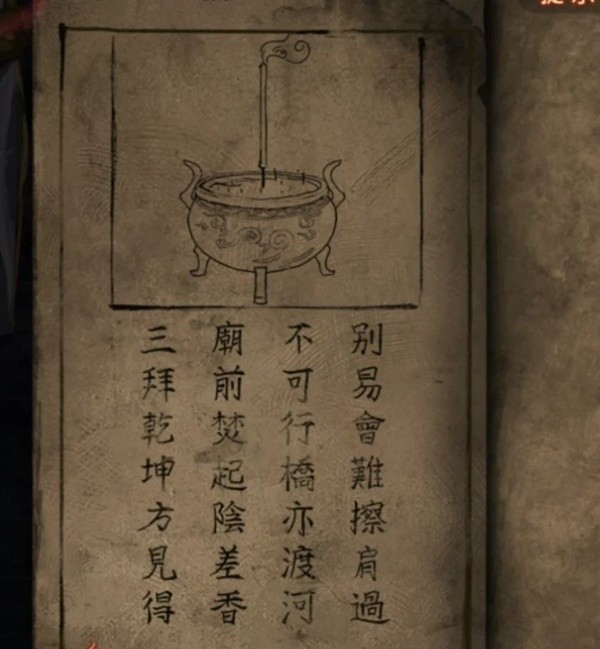 別易會難擦肩過
不可行橋亦渡河
廟前焚起陰差香
三拜乾坤方見得